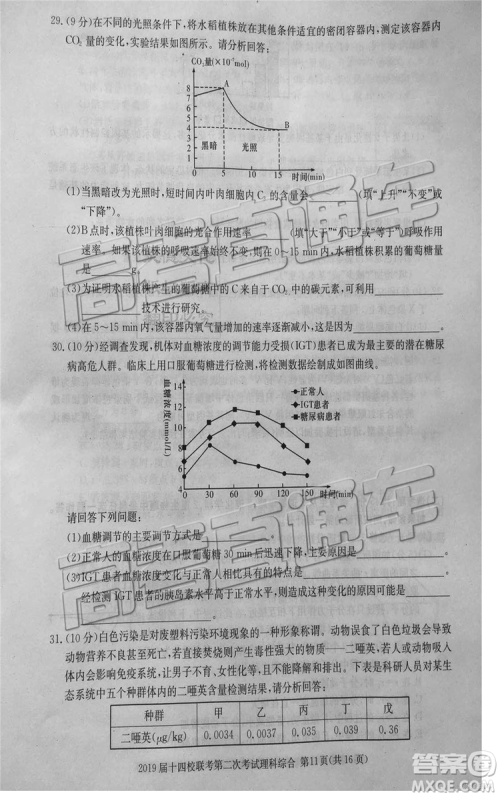 29.(9分)在不同的光照条件下,将水稻植株放在其他条件适宜的密闭容器内,测定该容器内
CO₂量的变化,实验结果如图所示。请分析回答:
CO₂量(×10⁻⁷mol)
8
7
6
5
4
3
2
1
A
B
黑暗
光照
0
5
10
15
时间(min)
(1)当黑暗改为光照时,短时间内叶肉细胞内C₃的含量会________(填“上升”“不变”或
“下降”)。
(2)B点时,该植株叶肉细胞的光合作用速率________(填“大于”“小于”或“等于”)呼吸作用
速率。如果该植株的呼吸速率始终不变,则在0~15 min内,水稻植株积累的葡萄糖量
是________g。
(3)为证明水稻植株产生的葡萄糖中的C来自于CO₂中的碳元素,可利用________
________技术进行研究。
(4)在5~15 min内,该容器内氧气量增加的速率逐渐减小,这是因为________
30.(10分)经调查发现,机体对血糖浓度的调节能力受损(IGT)患者已成为最主要的潜在糖尿
病高危人群。临床上用口服葡萄糖进行检测,将检测数据绘制成如图曲线。
血糖浓度(mmol/L)
14
12
10
8
6
4
正常人
IGT患者
糖尿病患者
0
30
60
90
120
150
时间(min)
请回答下列问题:
(1)血糖调节的主要调节方式是________。
(2)正常人的血糖浓度在口服葡萄糖30 min后迅速下降,主要原因是________。
(3)IGT患者血糖浓度变化与正常人相比具有的特点是________,
经检测IGT患者的胰岛素水平高于正常水平,则造成其血糖浓度变化的原因可能是
________。
31.(10分)白色污染是对废塑料污染环境现象的一种形象称谓。动物误食了白色垃圾会导致
动物营养不良甚至死亡;若直接焚烧则产生毒性强大的物质——二噁英,若人或动物吸入
体内会影响免疫系统,让其患病和致癌几率大大增加。下表是科研人员对某生
态系统中五个种群体内的二噁英含量检测结果,请分析回答:
种群 甲 乙 丙 丁 戊
二噁英(μg/kg) 0.0034 0.0037 0.035 0.039 0.36
2019届十四校联考第二次考试理科综合 第11页(共16页)
高考直通车
高考直通车